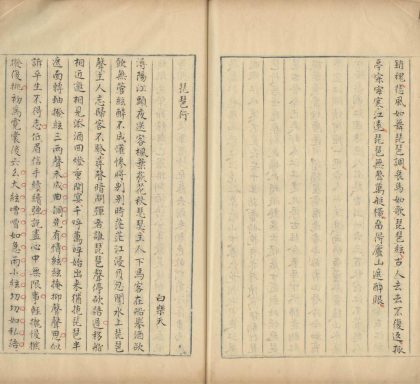 銷魂 風如舞琵琶調 馬如歌琵琶絃古人去去不復返
亭 寒江 琵琶無聲萬 橫 盧山遮醉眼
琵琶行
白樂天
潯陽江頭夜送客楓葉荻花秋瑟瑟主人下馬客在船舉酒欲
飲無管絃醉不成懽慘將別別時茫茫江浸月忽聞水上琵琶
聲主人忘歸客不發尋聲暗問彈者誰琵琶聲停欲語遲移船
相近邀相見添酒回燈重開宴千呼萬喚始出來猶抱琵琶半
遮面轉軸撥絃三兩聲未成曲調先有情絃絃掩抑聲聲思似
訴平生不得志低眉信手續續彈說盡心中無限事輕攏慢撚
撥復挑初為霓裳後六么大絃嘈嘈如急雨小絃切切如私語